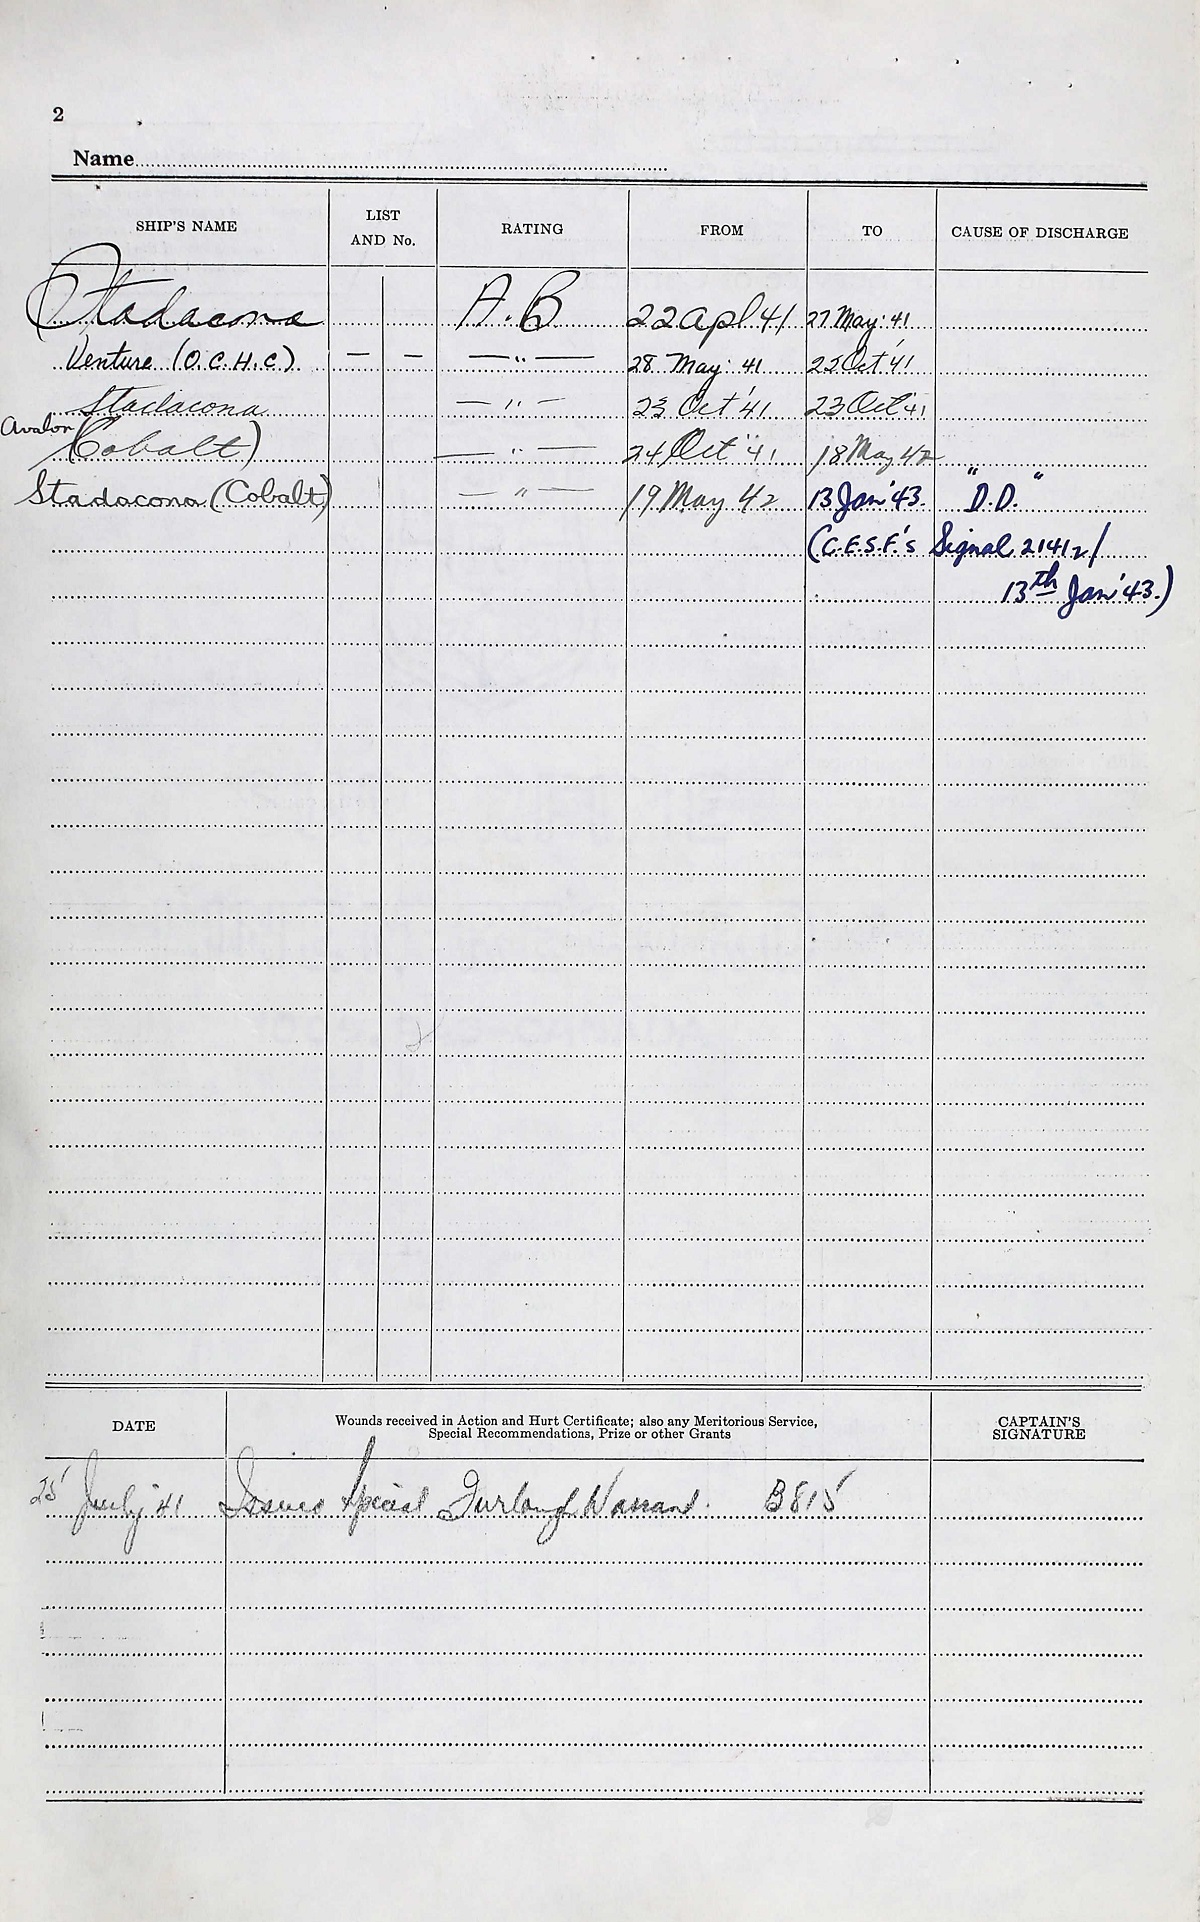 2
Name
SHIP'S NAME LIST AND No. RATING FROM TO CAUSE OF DISCHARGE
Stadacona A.B 22 Apl 41 27 May. 41
Venture (O.C.H.C) — — — " — 28 May. 41 22 Oct '41
Stadacona — " — 23 Oct '41 23 Oct '41
Avalon
(Cobalt) — " — 24 Oct '41 18 May 42
Stadacona (Cobalt) — " — 19 May 42 13 Jan '43. "D.D."
(C.E.S.F.'s Signal 2141z/
13th Jan '43.)
DATE Wounds received in Action and Hurt Certificate; also any Meritorious Service, CAPTAIN'S
Special Recommendations, Prize or other Grants SIGNATURE
25 July 41 Issued Special Furlough Warrant. B815